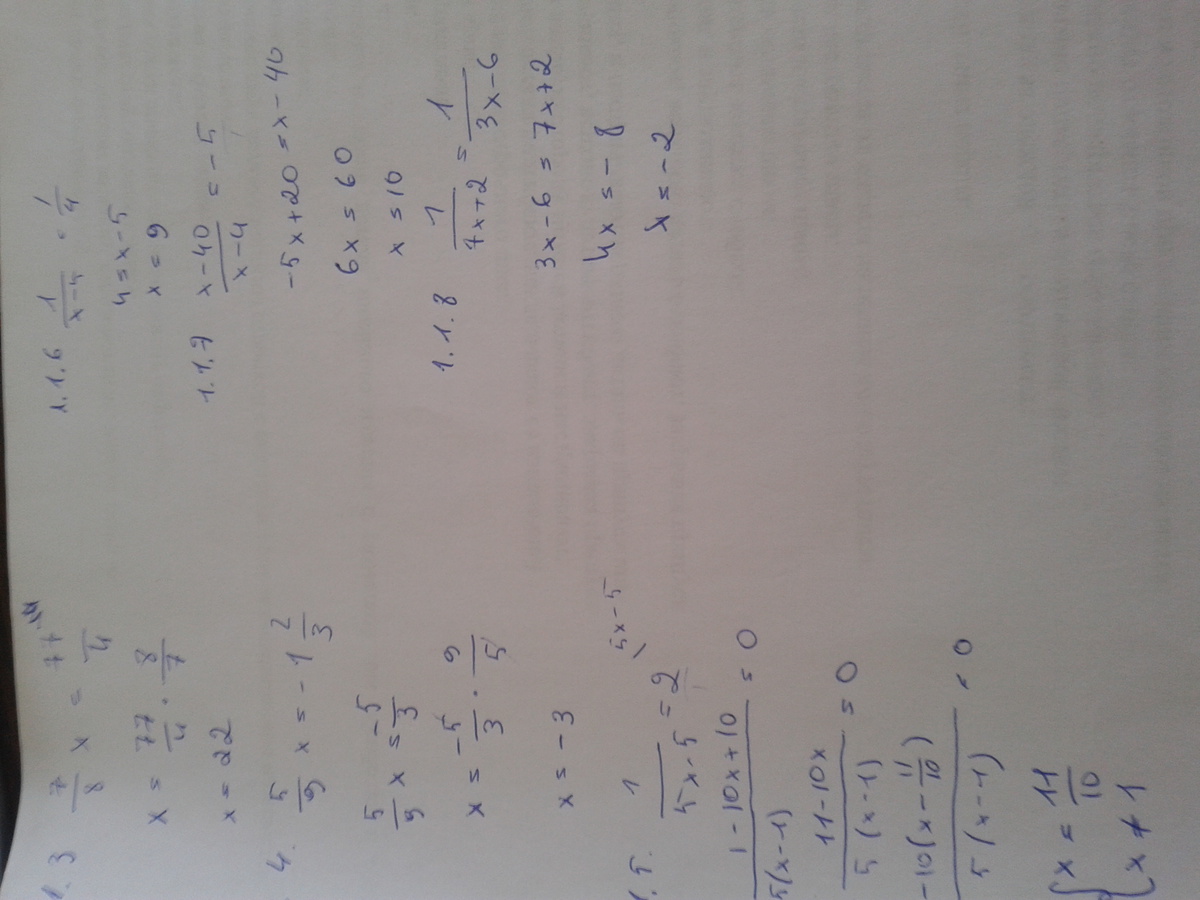 1.3 7/8 x = 77/4
x = 77/4 · 8/7
x = 22
4. 5/9 x = -1 2/3
5/9 x = -5/3
x = -5/3 · 9/5
x = -3
1.5. 1/(5x-5) = 2 \ 5x-5
(1-10x+10)/(5(x-1)) = 0
(11-10x)/(5(x-1)) = 0
-10(x-11/10)/(5(x-1)) = 0
{ x = 11/10
{ x ≠ 1
1.1.6 1/(x-4) = 1/4
4 = x-5
x = 9
1.1.7 (x-40)/(x-4) = -5
-5x+20 = x-40
6x = 60
x = 10
1.1.8 1/(7x+2) = 1/(3x-6)
3x-6 = 7x+2
4x = -8
x = -2